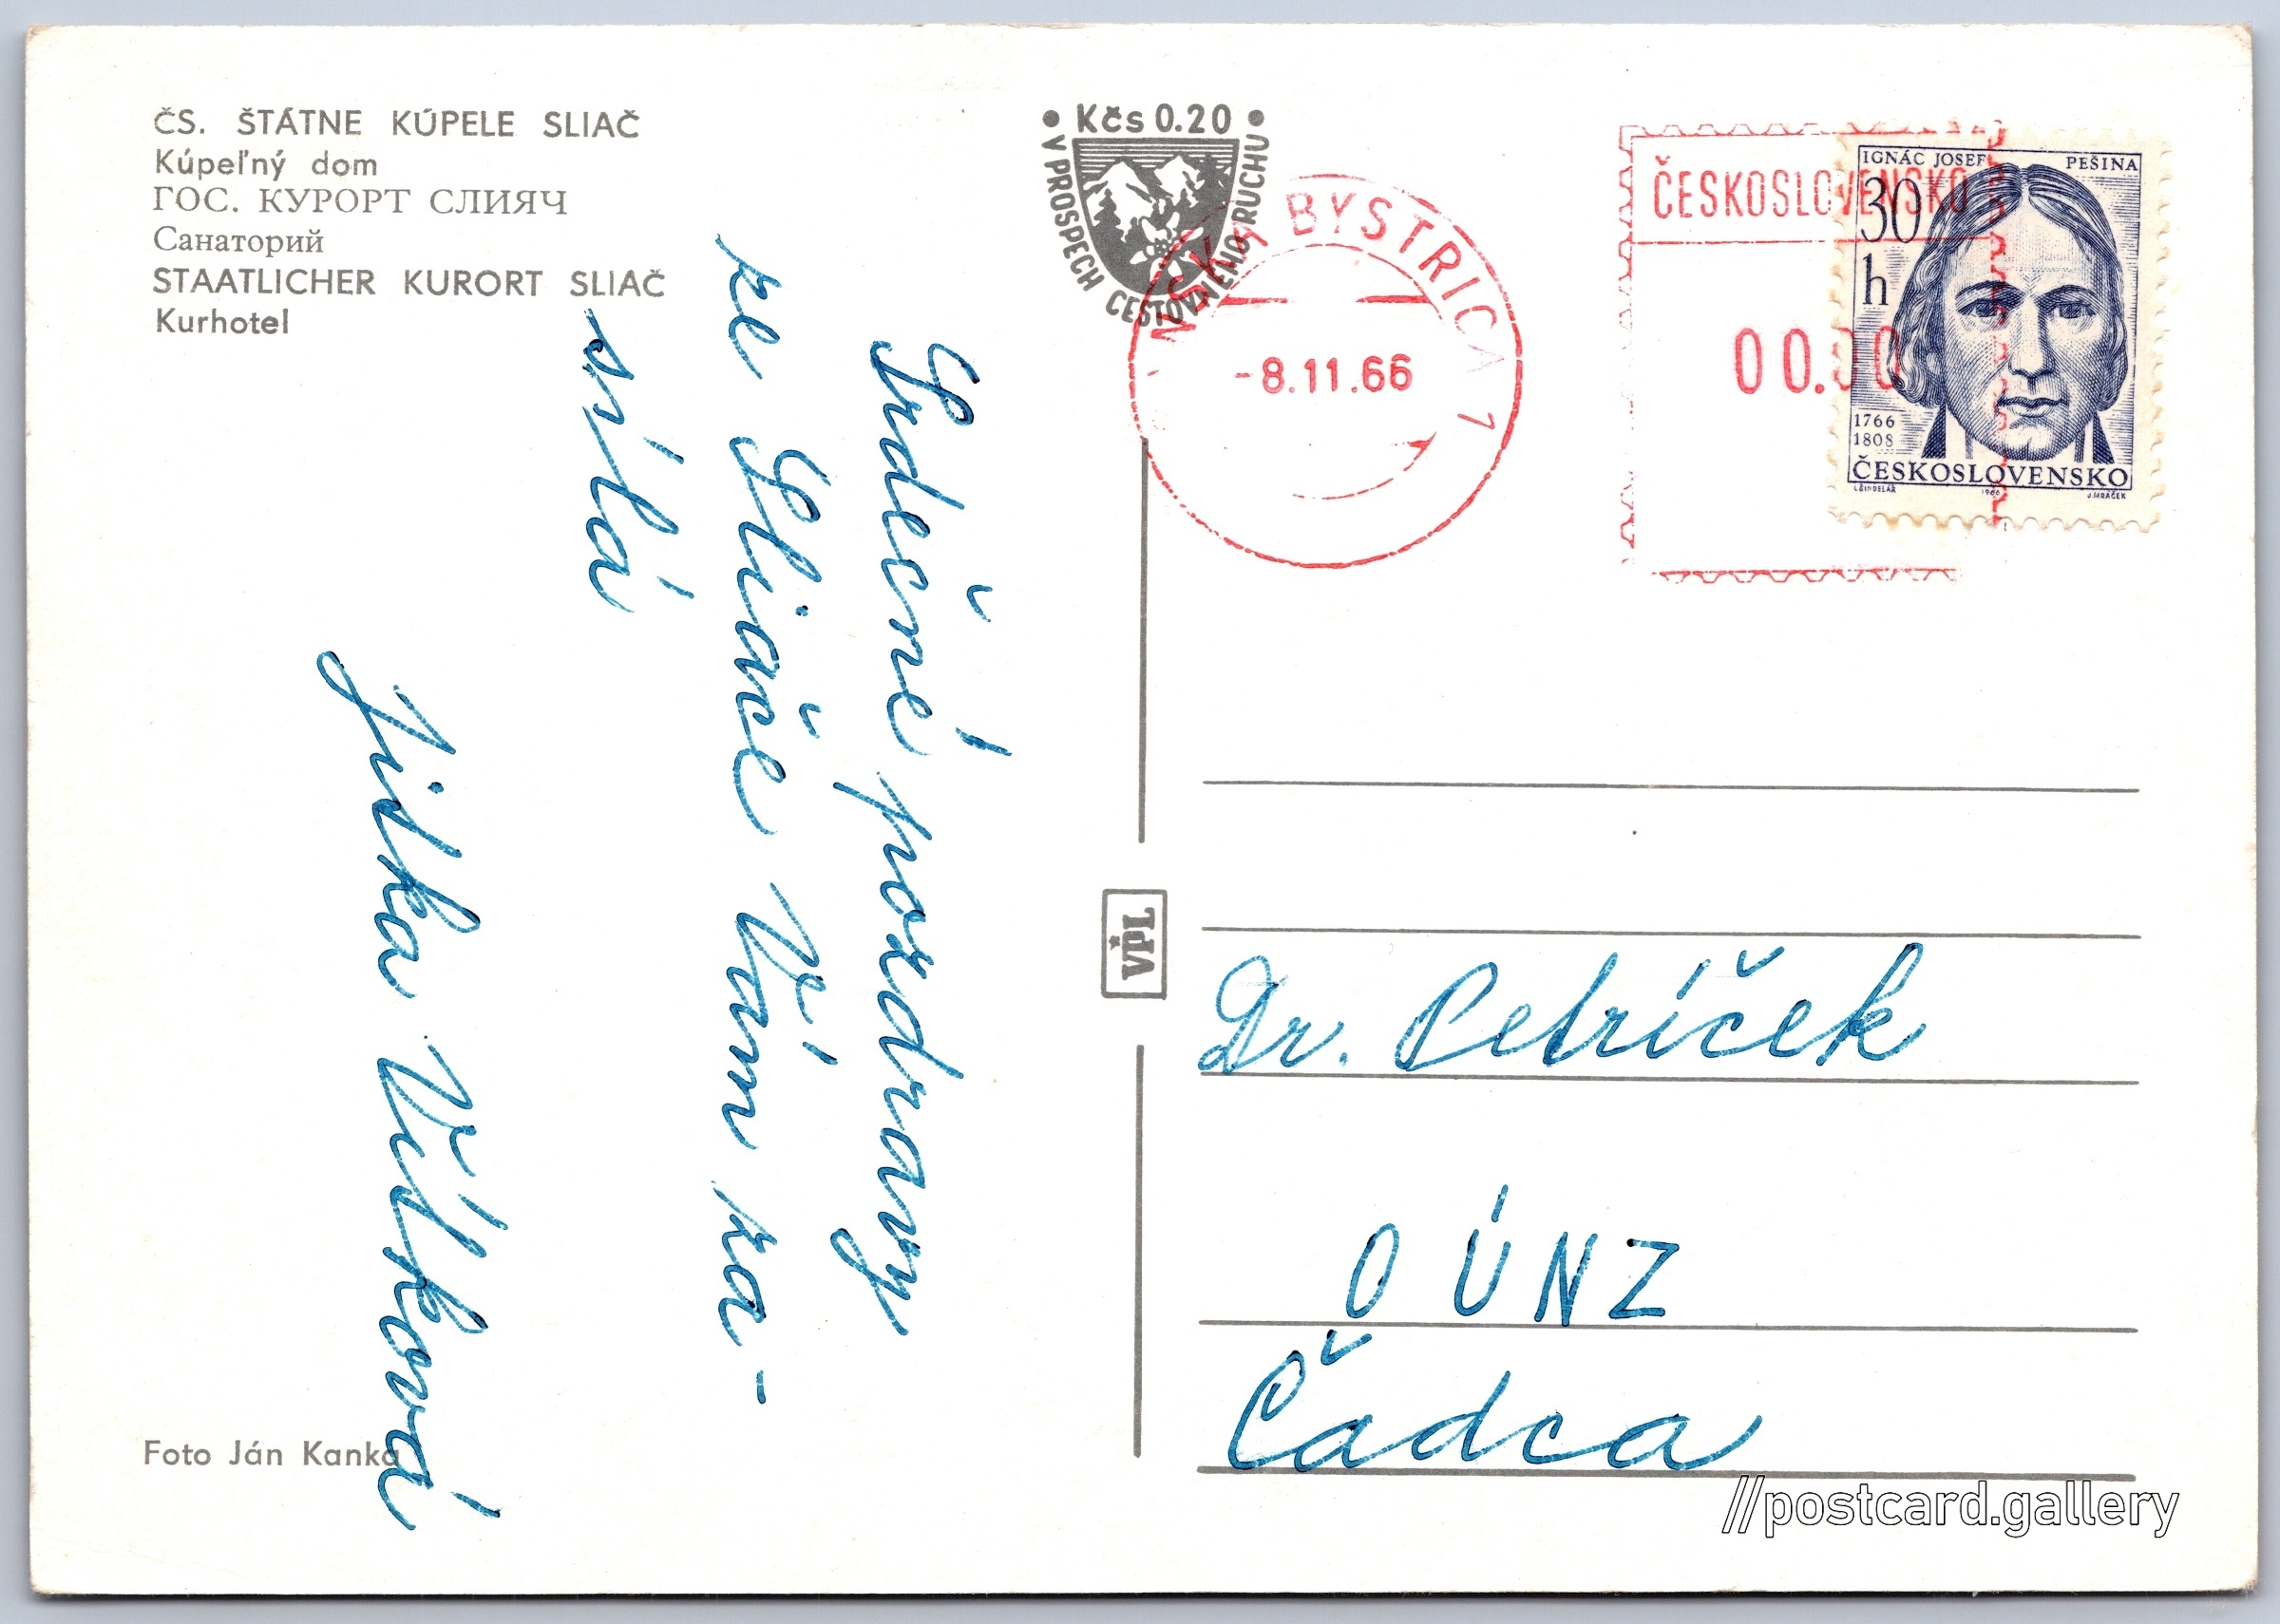 ČS. ŠTÁTNE KÚPELE SLIAČ
Kúpeľný dom
ГОС. КУРОРТ СЛИЯЧ
Санаторий
STAATLICHER KURORT SLIAČ
Kurhotel
• Kčs 0.20 •
V PROSPECH CESTOVNÉHO RUCHU
BYSTRICA 1
-8.11.66
ČESKOSLOVENSKO
00.00
IGNÁC JOSEF PEŠINA
30
h
1766
1808
ČESKOSLOVENSKO
L.ŠINDELÁŘ 1966 J.MRÁČEK
Srdečné pozdravy
ze Sliače Vám za-
sílá
Jitka Vítková
VPL
Dr. Petríček
OÚNZ
Čadca
Foto Ján Kanka
//postcard.gallery